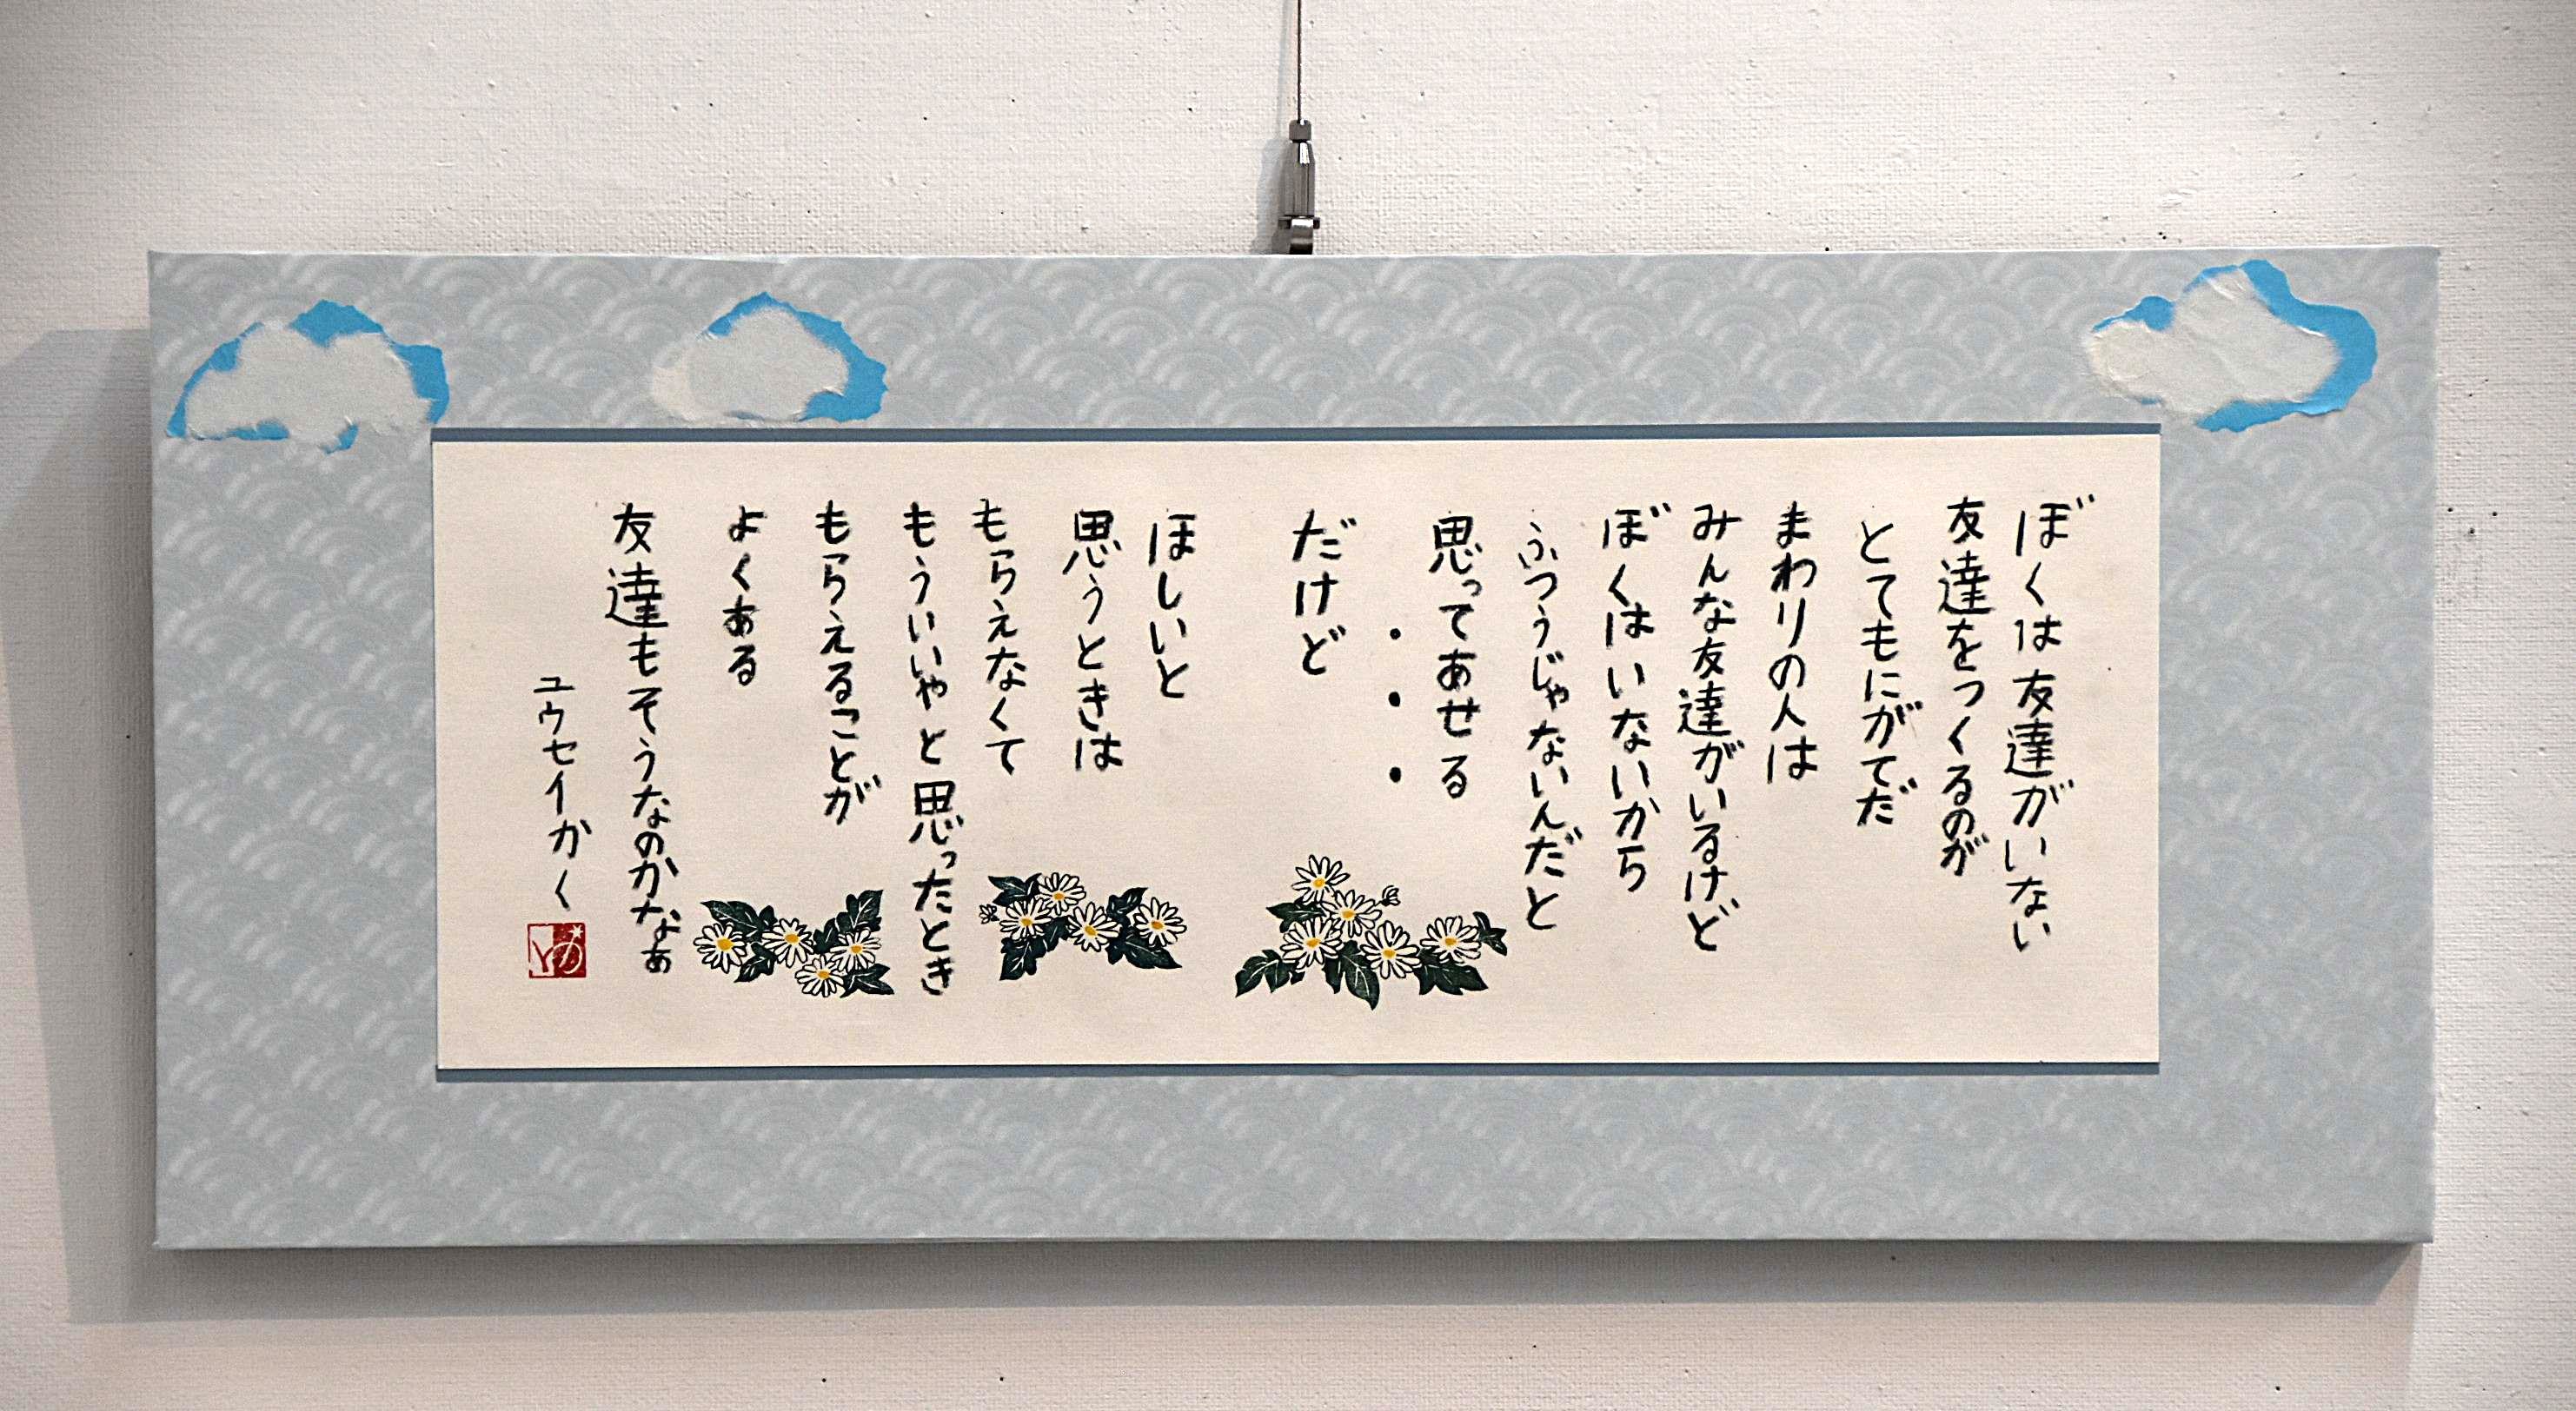 ぼくは友達がいない
友達をつくるのが
とてもにがてだ
まわりの人は
みんな友達がいるけど
ぼくはいないから
ふつうじゃないんだと
思ってあせる
・・・
だけど
ほしいと
思うときは
もらえなくて
もういいやと思ったとき
もらえることが
よくある
友達もそうなのかなぁ
ユウセイかく